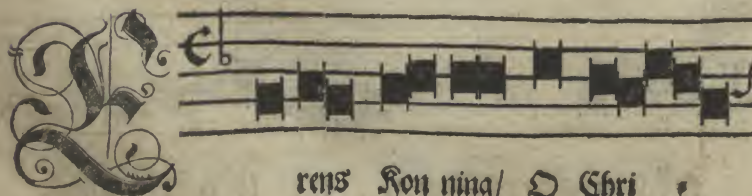 rens Kon ning/ O Chri ⸗